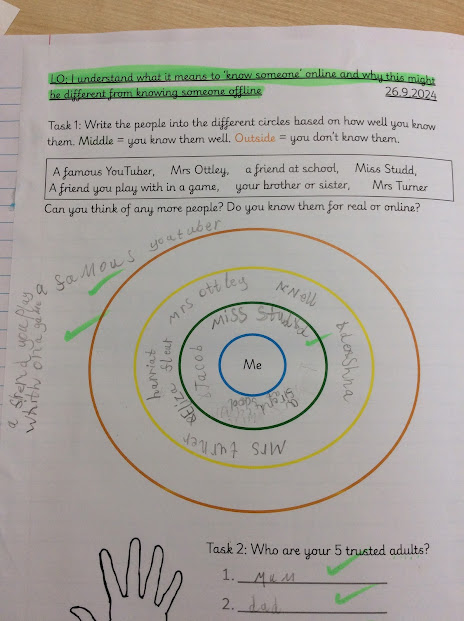 LO: I understand what it means to 'know someone' online and why this might
be different from knowing someone offline
26.9.2024
Task 1: Write the people into the different circles based on how well you know
them. Middle = you know them well. Outside = you don't know them.
A famous YouTuber, Mrs Ottley, a friend at school, Miss Studd,
A friend you play with in a game, your brother or sister, Mrs Turner
Can you think of any more people? Do you know them for real or online?
a famous youtuber
Mrs ottley
Miss Studd
Me
harriat
Jacob
Mrs turner
Task 2: Who are your 5 trusted adults?
1. Mum
2. dad